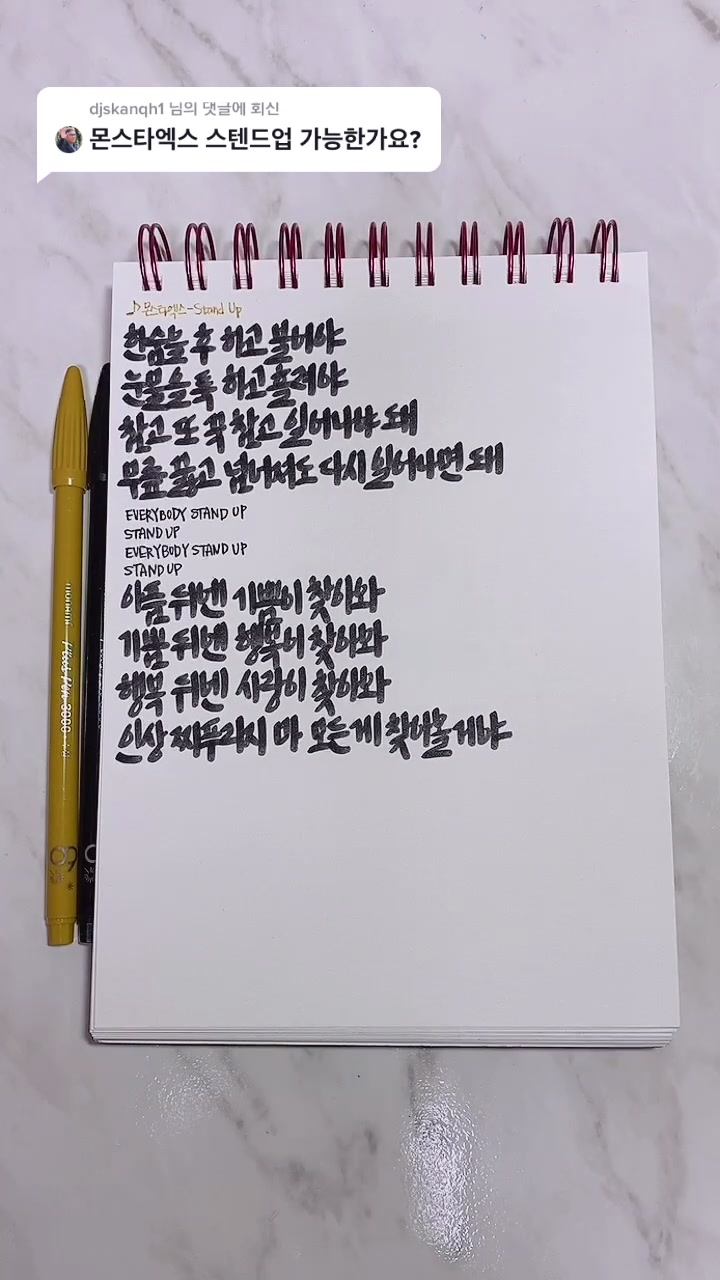 djskanqh1 님의 댓글에 회신
몬스타엑스 스텐드업 가능한가요?
♪몬스타엑스-Stand Up
한숨을 후 하고 불어야
눈물을 툭 하고 흘려야
참고 또 꾹 참고 일어나야 돼
무릎 꿇고 넘어져도 다시 일어나면 돼
EVERYBODY STAND UP
STAND UP
EVERYBODY STAND UP
STAND UP
아픔 뒤엔 기쁨이 찾아와
기쁨 뒤엔 행복이 찾아와
행복 뒤엔 사랑이 찾아와
인상 찌푸리지 마 모든 게 찾아올 거야
monami Plus Pen 3000
60